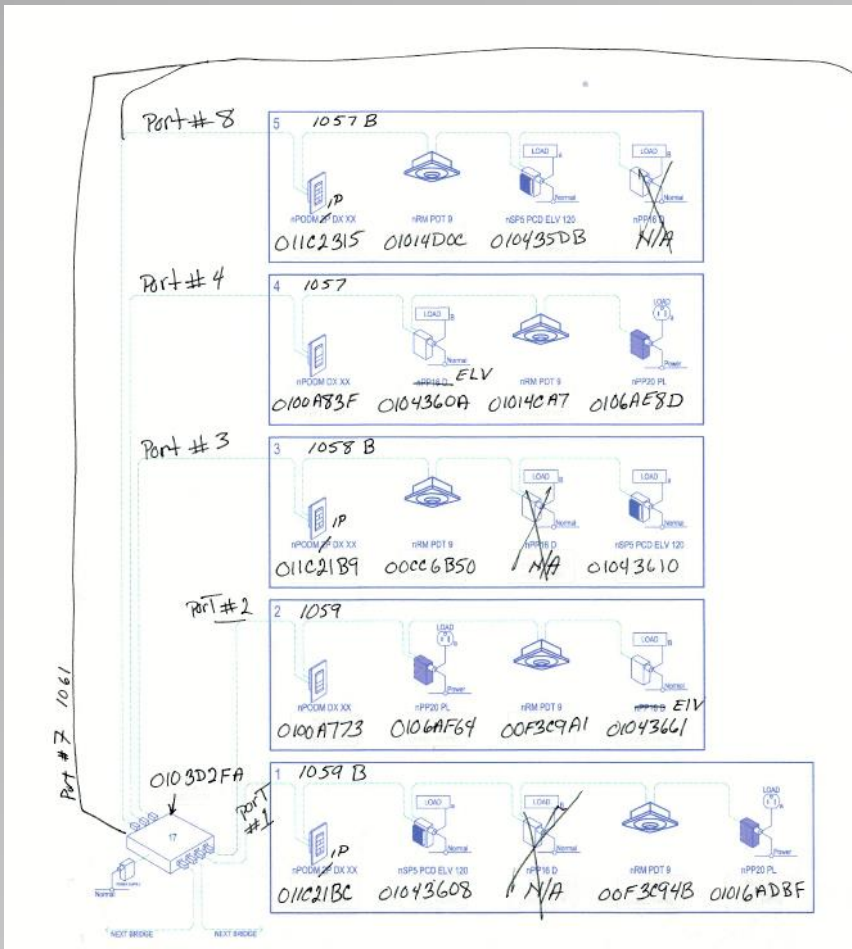 Port # 8
5 1057 B
LOAD a
LOAD B
Normal Normal
1P
nPODM 2P DX XX nRM PDT 9 nSP5 PCD ELV 120 nPP16 D
011C2315 01014D0C 010435DB N/A
Port # 4
4 1057
LOAD B
LOAD a
Normal Power
nPODM DX XX nPP16 D ELV nRM PDT 9 nPP20 PL
0100A83F 0104360A 01014CA7 0106AE8D
Port # 3
3 1058 B
LOAD B
LOAD a
Normal Normal
1P
nPODM 2P DX XX nRM PDT 9 nPP16 D nSP5 PCD ELV 120
011C21B9 00CC6B50 N/A 01043610
PorT #2
2 1059
LOAD a
LOAD B
Power Normal
nPODM DX XX nPP20 PL nRM PDT 9 nPP16 D ELV
0100A773 0106AF64 00F3C9A1 01043661
Port # 7 1061
0103D2FA
PorT #1
1 1059 B
LOAD a
LOAD B
LOAD a
Normal Normal Power
1P
nPODM 2P DX XX nSP5 PCD ELV 120 nPP16 D nRM PDT 9 nPP20 PL
011C21BC 01043608 N/A 00F3C94B 01016ADBF
17
POWER SUPPLY
Normal
NEXT BRIDGE NEXT BRIDGE